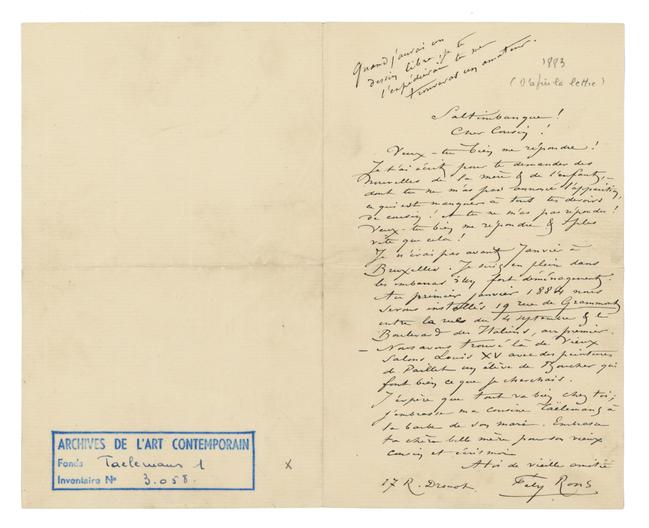 Quand j'aurai un
dessin libre, je te
l'expédierai tu me
trouveras un amateur.
1883
(D'après la lettre)
Saltimbanque !
Cher Cousin !
Veux-tu bien me répondre !
Je t'ai écrit pour te demander des
nouvelles de la mère & de l'enfant,
dont tu ne m'as pas annoncé l'apparition,
ce qui est manquer à tous tes devoirs
de cousin ! & tu ne m'as pas répondu !
Veux-tu bien me répondre & plus
vite que cela !
Je n'irai pas avant Janvier à
Bruxelles. Je suis en plein dans
les embarras d'un fort déménagement
Au premier janvier 1884 nous
serons installés 19 rue de Grammont
entre la rue du 4 septembre & le
Boulevard des Italiens, au premier.
– Nous avons trouvé là de vieux
Salons Louis XV avec des peintures
de Paillet un élève de Boucher qui
font bien ce que je cherchais.
J'espère que tout va bien chez toi,
j'embrasse ma cousine Taëlemans à
la barbe de son mari. Embrasse
ta chère belle mère pour son vieux
cousin et écris moi
A toi de vieille amitié
17 R. Drouot Fély Rops
ARCHIVES DE L'ART CONTEMPORAIN
Fonds Taelemans 1
Inventaire N° 3.058.
x